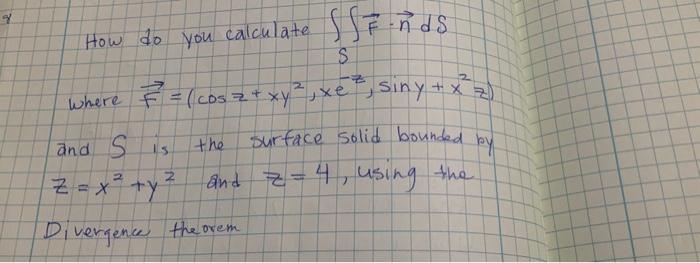 How do you calculate ∫∫_S F⃗ · n⃗ dS
where F⃗ = (cos z + xy², xe^{-z}, sin y + x²z)
and S is the surface solid bounded by
z = x² + y² and z = 4, using the
Divergence theorem